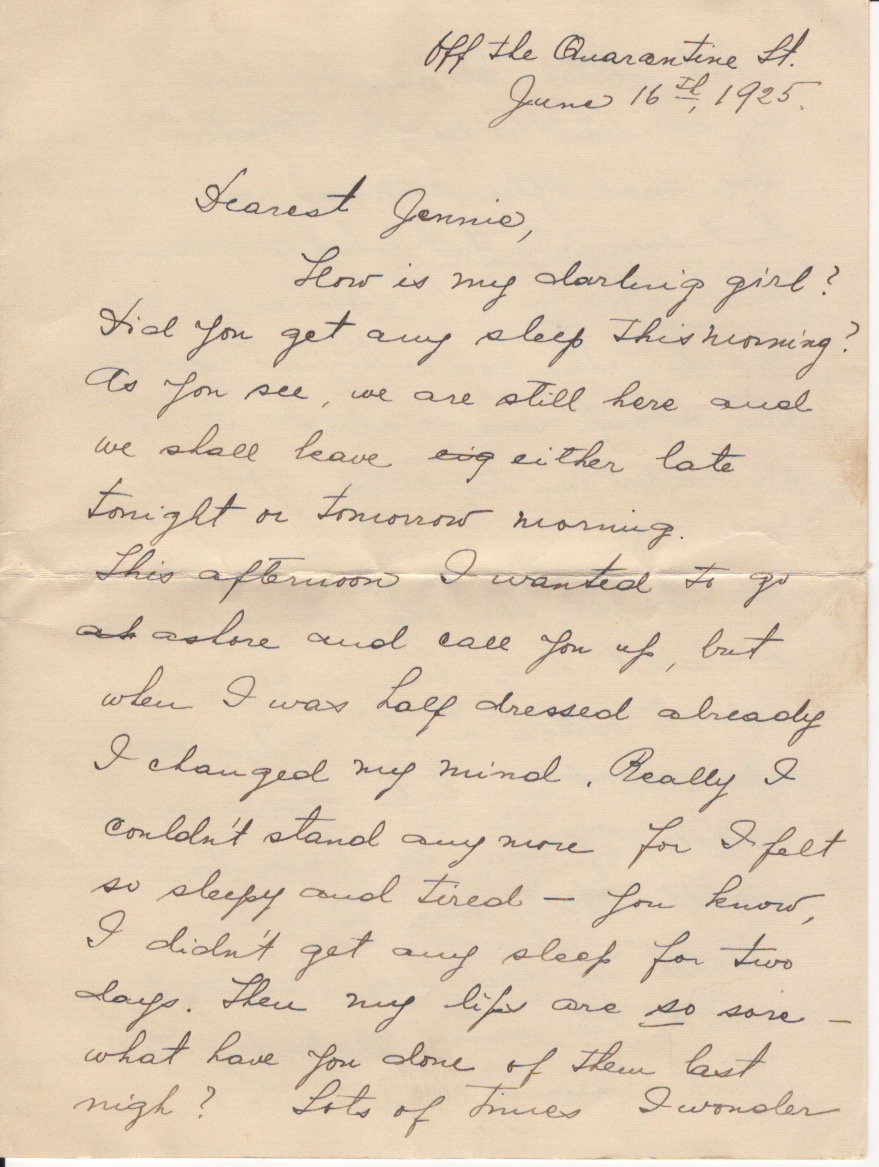 Off the Quarantine St.
June 16th, 1925.
Dearest Jennie,
How is my darling girl?
Did you get any sleep this morning?
As you see, we are still here and
we shall leave eig either late
tonight or tomorrow morning.
This afternoon I wanted to go
ash ashore and call you up, but
when I was half dressed already
I changed my mind. Really I
couldn't stand any more for I felt
so sleepy and tired — you know,
I didn't get any sleep for two
days. Then my lips are so sore —
what have you done of them last
nigh? Lots of times I wonder